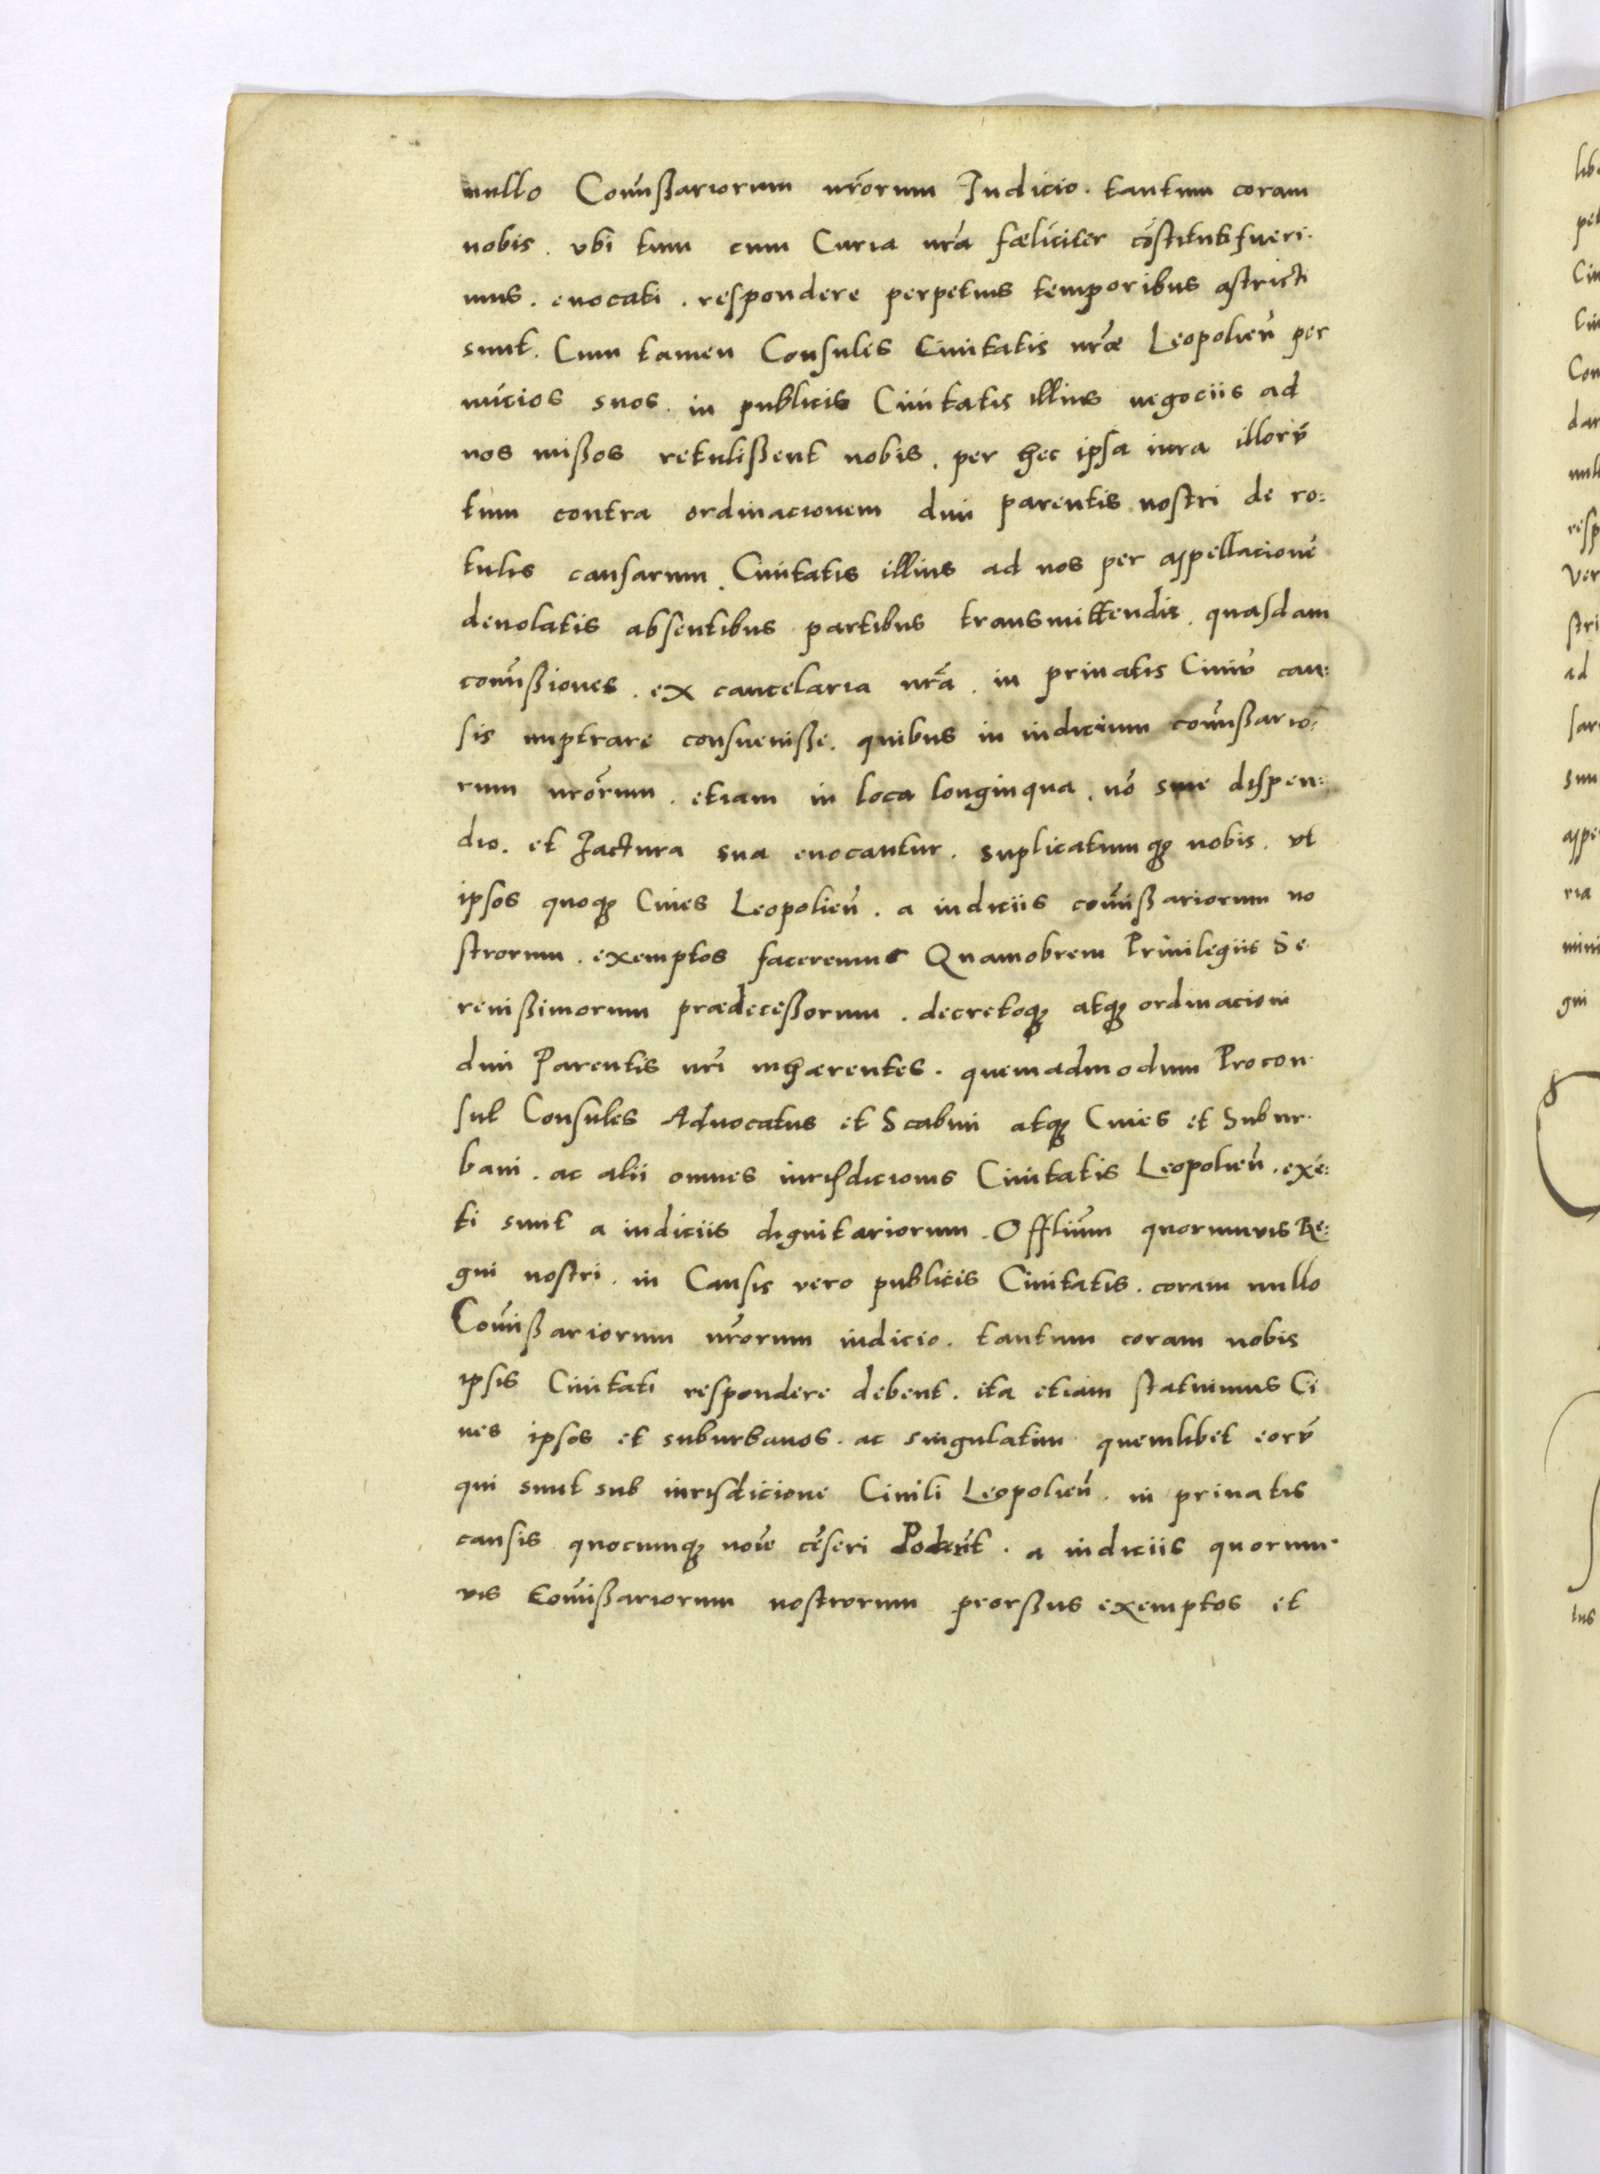 nullo Com̃ißariorum nr̃orum Iudicio. tantum coram
nobis. vbi tum cum Curia nr̃a fæliciter cõstituti fueri.
mus. euocati. respondere perpetuis temporibus astricti
sunt. Cum tamen Consules Ciuitatis nr̃æ Leopolien̄ per
nũcios suos. in publicis Ciuitatis illius negociis ad
nos mißos retulißent nobis. per hec ipsa iura illorũ
tum contra ordinacionem dni parentis nostri de ro:
tulis causarum Ciuitatis illius ad nos per appellacionē
deuolatis absentibus partibus transmittendis. quasdam
com̃ißiones. ex cancelaria nr̃a. in priuatis Ciuiũ cau:
sis impetrare consueuiße. quibus in iudicium com̃ißario:
rum nr̃orum. etiam in loca longinqua. nõ sine dispen:
dio. et Iactura sua euocantur. suplicatumqꝫ nobis. vt
ipsos quoqꝫ Ciues Leopolien̄. a iudiciis com̃ißariorum no
strorum. exemptos faceremus Quamobrem Priuilegiis Se
renißimorum prædeceßorum. decretoqꝫ atqꝫ ordinacioni
dni Parentis nr̃i inhærentes. quemadmodum Procon.
sul Consules Aduocatus et Scabini atqꝫ Ciues et Subur.
bani. ac alii omnes iurisdicionis Ciuitatis Leopolien̄. exẽ:
ti sunt a iudiciis dignitariorum. Offliũm quorumuis Re:
gni nostri. in Causis vero publicis Ciuitatis. coram nullo
Com̃ißariorum nr̃orum iudicio. tantum coram nobis
ipsis Ciuitati respondere debent. ita etiam statuimus Ci
ues ipsos et suburbanos. ac singulatim quemlibet eorũ
qui sunt sub iurisdicione Ciuili Leopolien̄. in priuatis
causis quocumqꝫ noĩe cẽseri Poterũt. a iudiciis quorum.
vis Com̃ißariorum nostrorum prorßus exemptos et